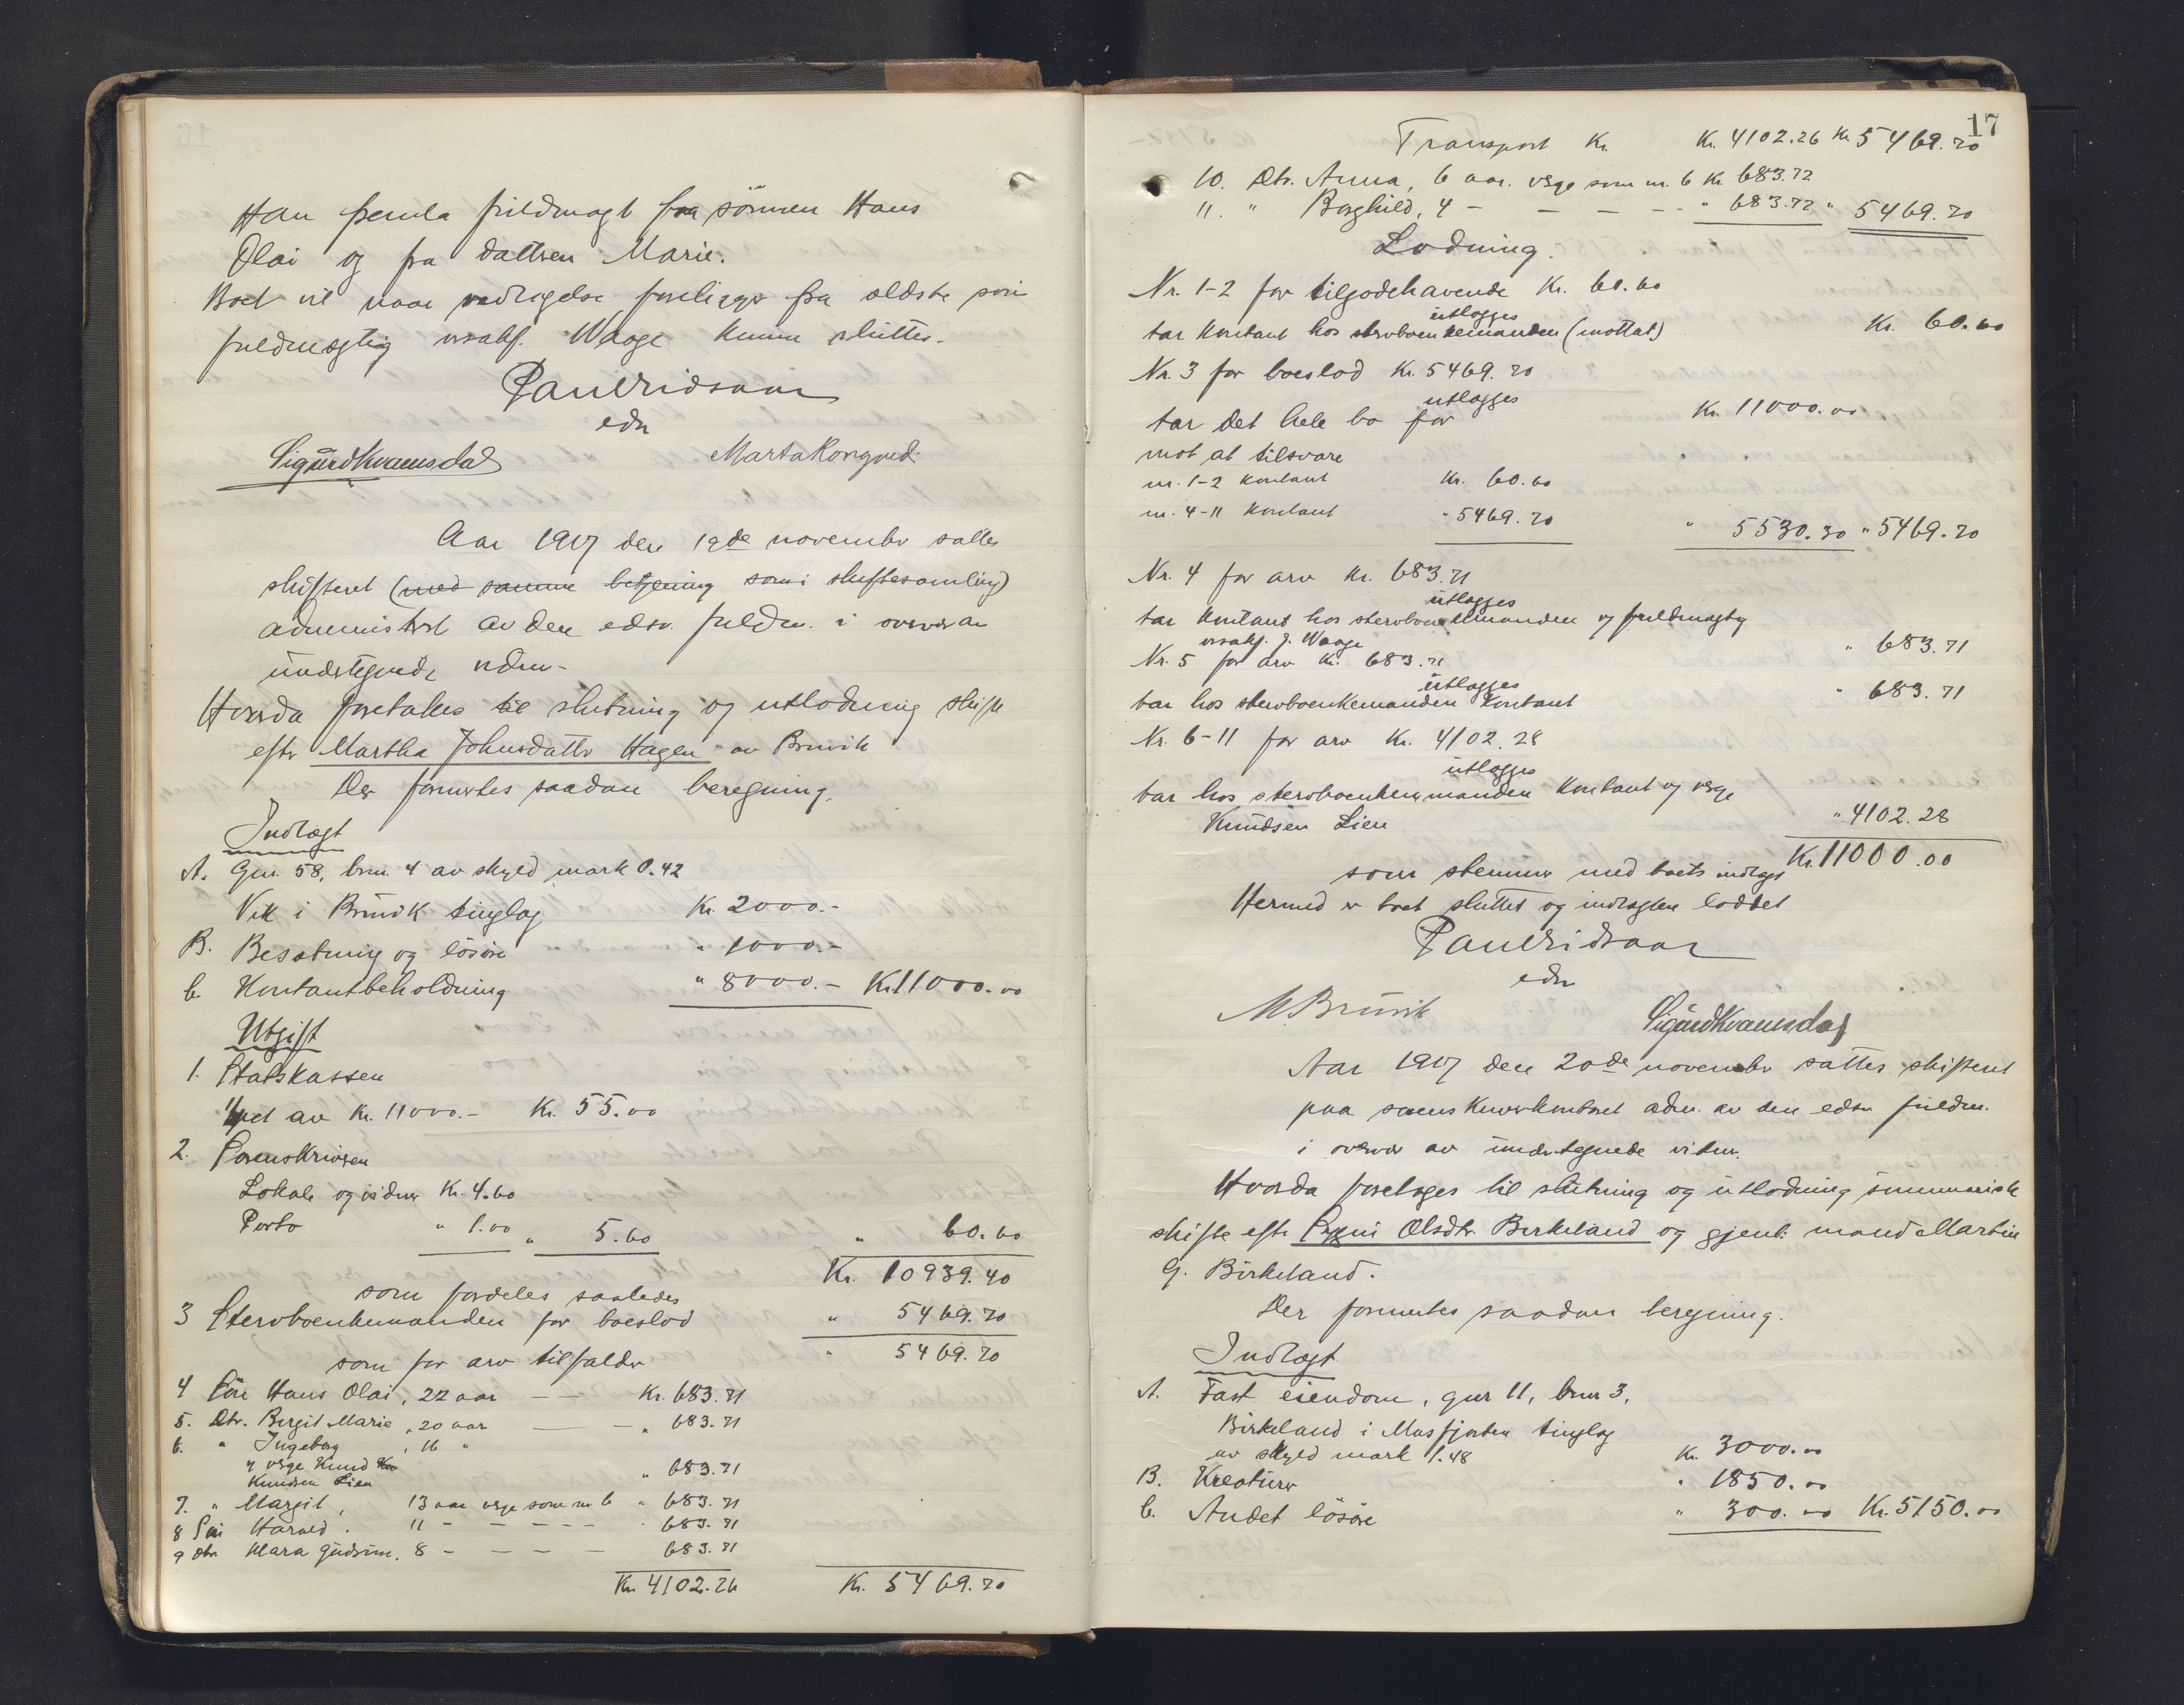 Han fremla fuldmagt fra sönnen Hans
Olai og fra datteren Marie.
Boet vil naar vedtagelse foreligger fra ældste sön
fuldmægtig Waage kunne sluttes.
Paul Vidsaar
edv
Sigurd Kvamsdal Marta Rongved
Aar 1917 den 19de november sattes
skifteret (med samme betjening som i skiftesamling)
administrert av den edsv. fuldm. i overvær av
undertegnede vidner.
Hvorda foretokes til slutning og utlodning skifte
efter Martha Johnsdatter Hagen av Bruvik
Der formertes saadan beregning.
Indtægt
A. Gnr. 58, brnr. 4 av skyld mark 0.42
Vik i Bruvik tinglag Kr. 2000.-
B. Besætning og lösöre " 1000.-
C. Kontantbeholdning " 8000.- Kr. 11000.00
Utgift
1. Statskassen
1/2 pct av Kr. 11000.- Kr. 55.00
2. Sorenskriveren
Lokale og vidner Kr. 4.60
Porto " 1.00 " 5.60 " 60.60
Kr. 10939.40
som fordeles saaledes
3 Stervboenkemanden for boeslod " 5469.70
som for arv tilfalder " 5469.70
4 Sön Hans Olai, 22 aar — — Kr. 683.71
5. Dtr. Bergit Marie, 20 aar — — " 683.71
6. " Ingeborg, 16 "
verge Knud
Knudsen Lien " 683.71
7. " Margit, 13 aar verge som nr 6 " 683.71
8 Sön Harald. 11 - — — — " 683.71
9 Dtr. Klara Gudrun, 8 - — — — 683.71
Kr. 4102.26 Kr. 5469.70
17
Transport Kr. Kr. 4102.26 Kr. 5469.70
10. Dtr. Anna, 6 aar. verge som nr. 6 Kr. 683.72
11. " Borghild, 4 - — — — " 683.72 " 5469.70
Lodning.
Nr. 1-2 for tilgodehavende Kr. 60.60
utlægges
tar kontant hos stervboenkemanden (mottat) Kr. 60.60
Nr. 3 for boeslod Kr. 5469.70
utlægges
tar det hele bo for Kr. 11000.00
mot at tilsvare
nr. 1-2 kontant Kr. 60.60
nr. 4-11 kontant " 5469.70 " 5530.30 " 5469.70
Nr. 4 for arv Kr. 683.71
utlægges
tar kontant hos stervboenkemanden og fuldmægtig
J. Waage " 683.71
Nr. 5 for arv Kr. 683.71
utlægges
tar hos stervboenkemanden kontant " 683.71
Nr. 6-11 for arv Kr. 4102.28
utlægges
tar hos stervboenkemanden kontant og verge
Knudsen Lien " 4102.28
Kr. 11000.00
som stemmer med boets indtægt
Hermed er boet sluttet og indtægten loddet
Paul Vidsaar
edv
M. Bruvik Sigurd Kvamsdal
Aar 1917 den 20de november sattes skifteret
paa sorenskriverkontoret adm. av den edsv. fuldm.
i overvær av undertegnede vidner.
Hvorda foretoges til slutning og utlodning summarisk
skifte efter Olsdtr. Birkeland og gjenl. mand Martin
G. Birkeland.
Der formertes saadan beregning.
Indtægt
A. Fast eiendom, gnr 11, brnr 3,
Birkeland i Masfjorden tinglag
av skyld mark 1.48 Kr. 3000.00
B. Kreaturer " 1850.00
C. Andet lösöre " 300.00 Kr. 5150.00